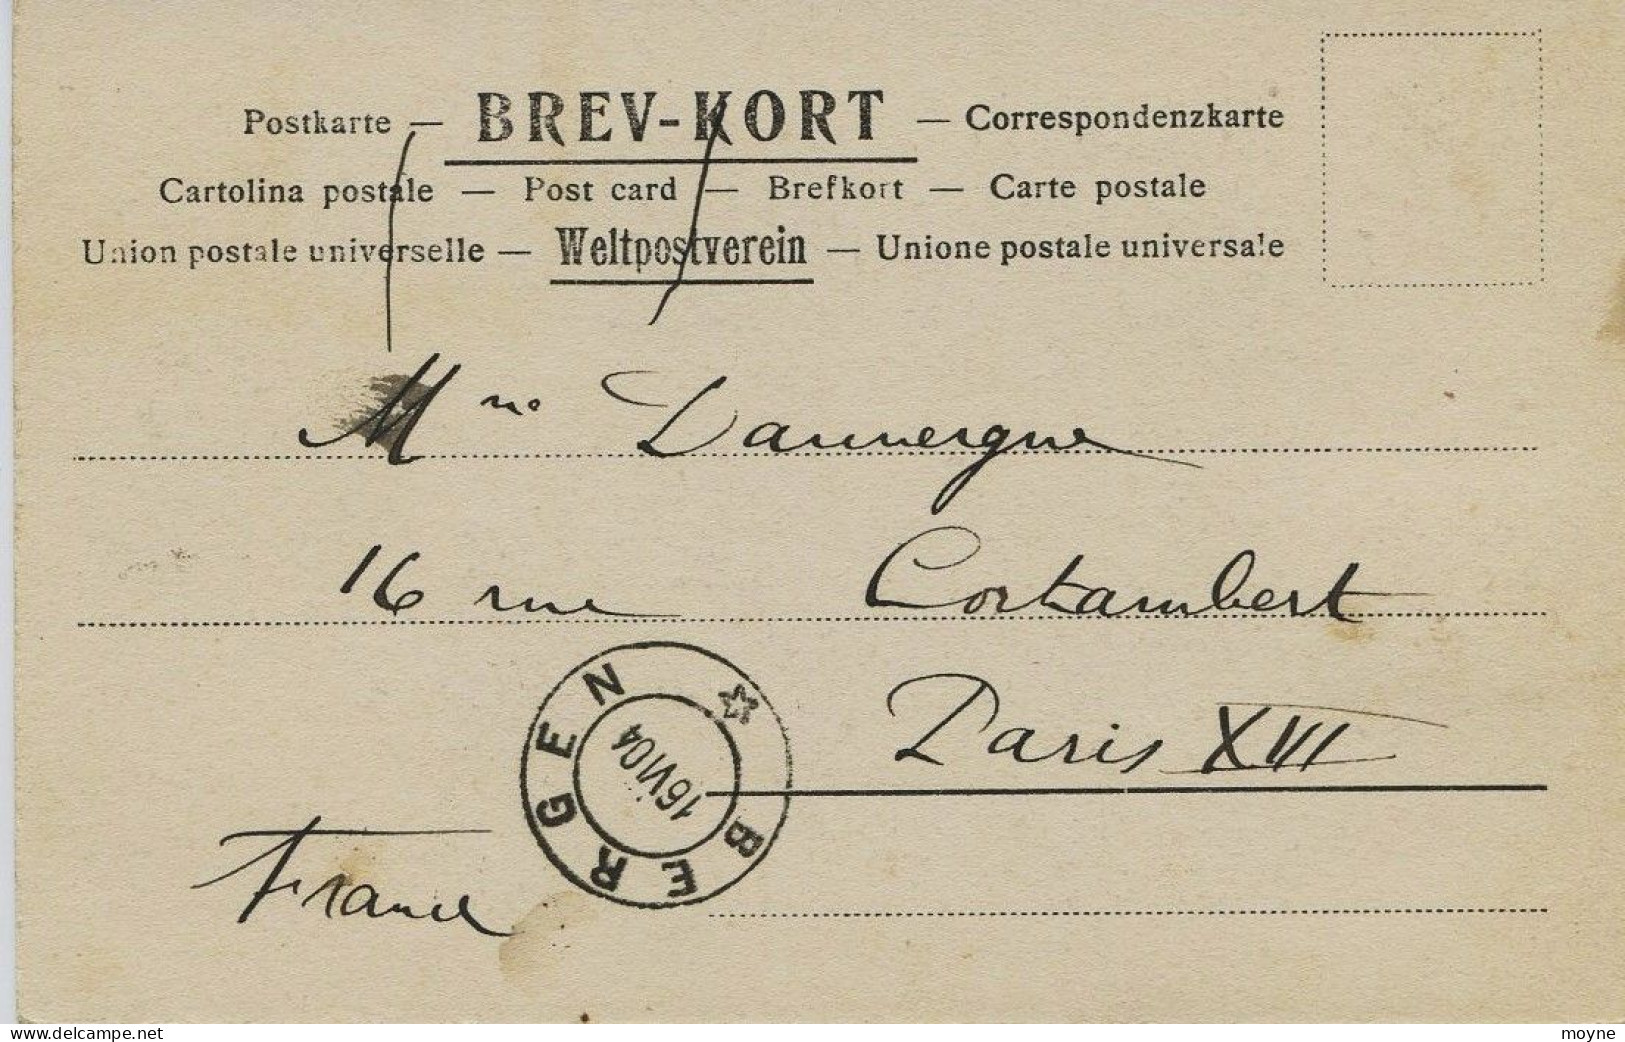 Postkarte — BREV-KORT — Correspondenzkarte
Cartolina postale — Post card — Brefkort — Carte postale
Union postale universelle — Weltpostverein — Unione postale universale
Mme Dauvergne
16 rue Cortambert
Paris XVI
BERGEN
16 VI 04
France
www.delcampe.net
moyne